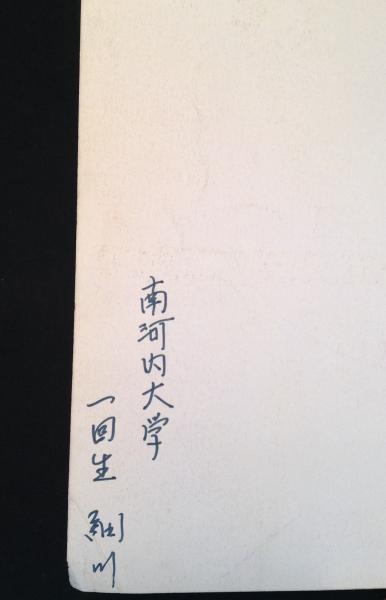 南河内大学
一回生 細川